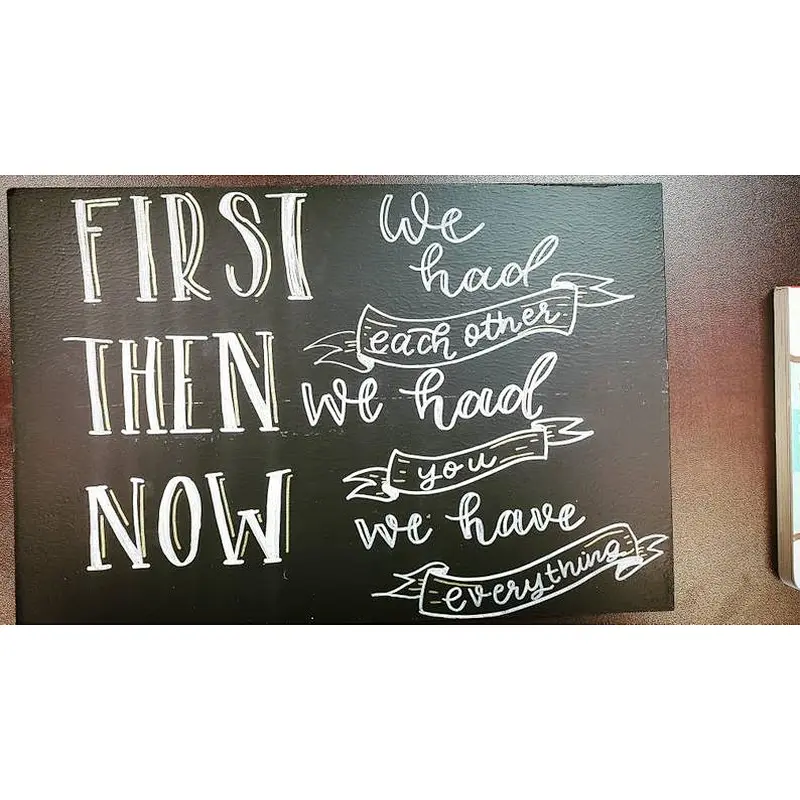 FIRST we had
each other
THEN we had
you
NOW we have
everything